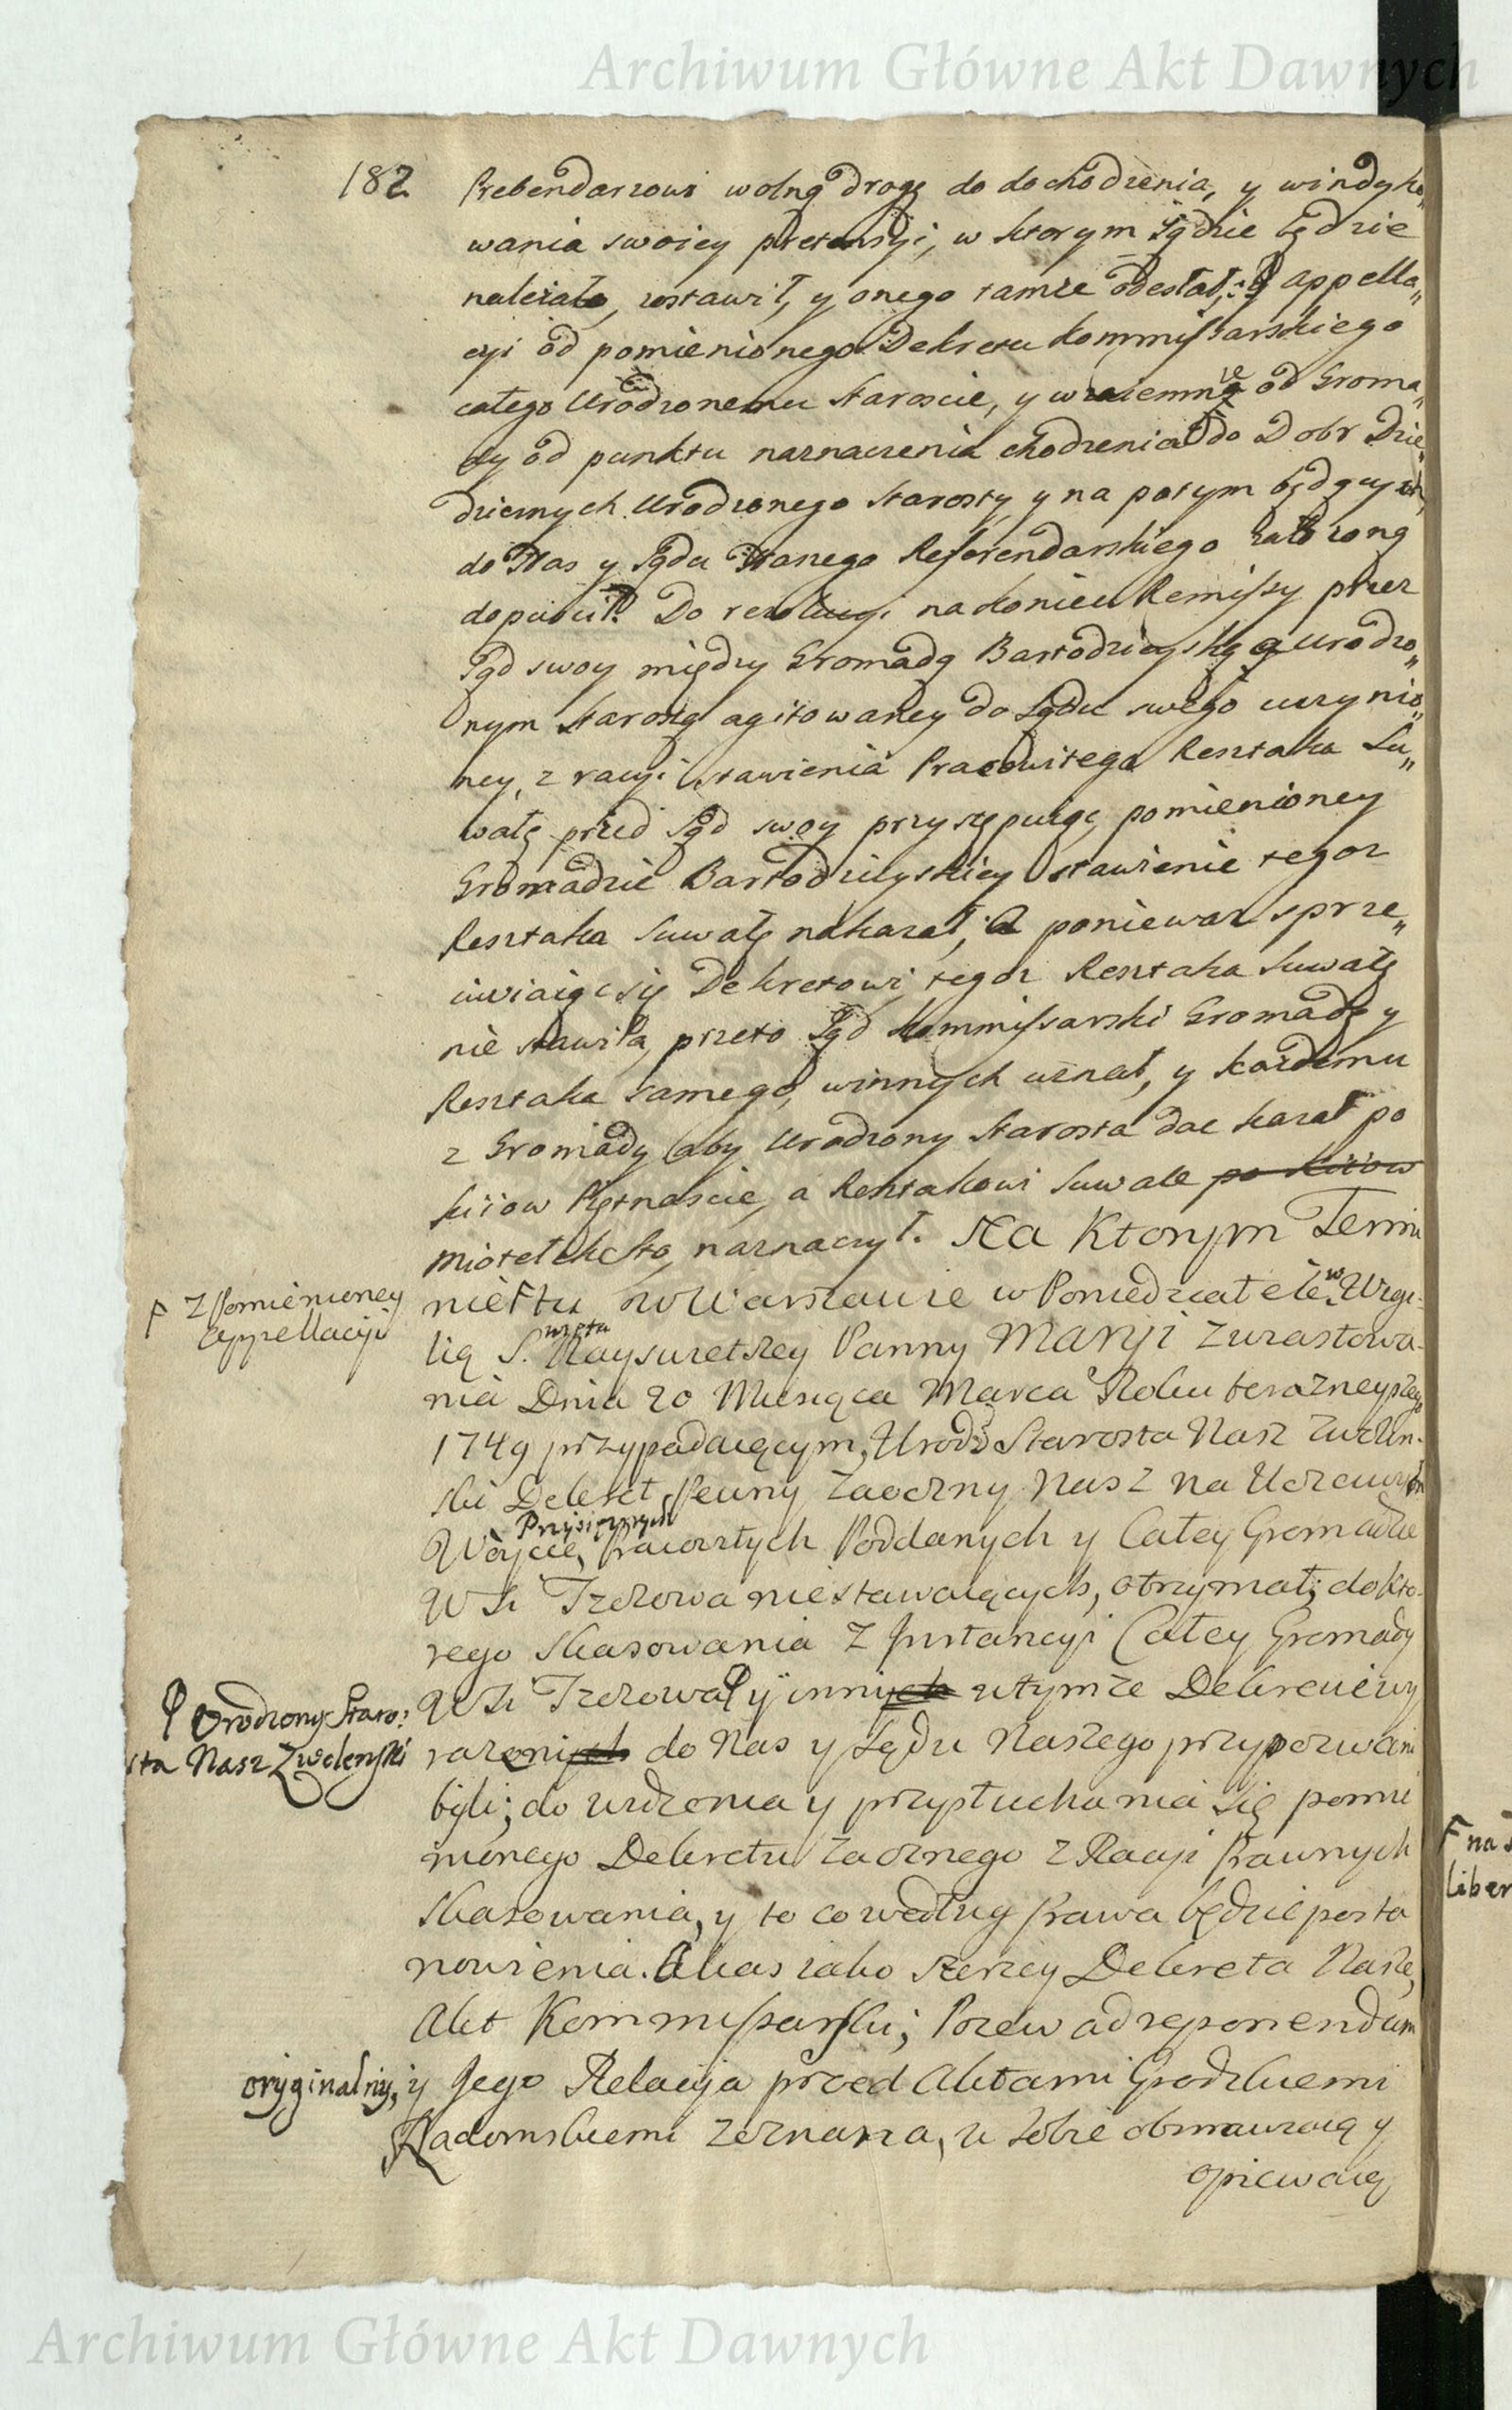 Archiwum Główne Akt Dawnych
182
Prebendarzowi wolną drogę do dochodzenia, y windyko„
wania swoiey pretensyi, w ktorym Sądzie będzie
należało, zostawił, y onego tamże odesłał, appella„
cyi od pomienionego Dekretu Kommissarskiego
całego Urodzonemu Staroscie, y wzaiemnie od Groma„
dy od punktu naznaczenia chodzenia do Dobr Dzie„
dzicznych Urodzonego Starosty y na potym będących,
do Nas y Sądu Naszego Referendarskiego założoną
dopuścił. Do rezolucyi na koniec Remissy przez
Sąd swoy między Gromadą Bartodzieyską a Urodzo„
nym Starostą agitowaney do Sądu swego uczynio„
ney, z racyi stawienia Pracowitego Resztaka Su„
wałę przed Sąd swoy przystępuiąc, pomienioney
Gromadzie Bartodzieyskiey stawienie tegoz
Resztaka Suwałę nakazał, A poniewaz sprze„
ciwiaiąc się Dekretowi tegoz Resztaka Suwałę
nie stawiła, przeto Sąd Kommissarski Gromadę y
Resztaka samego, winnych uznał, y kazdemu
z Gromady aby Urodzony Starosta dac kazał po
kiiow Piętnascie, a Resztakowi Suwale po kiiow
miotełek Sto, naznaczył. Na Ktorym Termi
nie tu w Warszawie w Poniedziałek w Wigi-
F Z Pomienioney
appellacyi
lią S. Nayswietszey Panny MARYI Zwiastowa-
święta
nia Dnia 20 Miesiąca Marca Roku teraznieyszego
1749 przypadaiącym, Urodz Starosta Nasz Zwolin-
ski Dekret Pewny Zaoczny Nasz na Uczciwych
Przysięznych
Woycie, Pracowitych Poddanych y Całey Gromadzie
Wsi Tczowa niestawaiących, otrzymał; do kto-
rego Skasowania z Instancyi Całey Gromady
Wsi Tczowa y innych w tymże Dekrecie wy
Urodzony Staro:
sta Nasz Zwolenski
razonych do Nas y Sądu Naszego przypozwani
byli; do widzenia y przysłuchania się pomie
nionego Dekretu Zaocznego z Racyi Prawnych
Skasowania, y to co według Prawa będzie posta
nowienia. Akas iako szerzey Dekreta Nasze,
Akt Kommissarski; Pozew ad reponendum
oryginalny, y Jego Relacyja przed Aktami Grodzkiemi
Radomskiemi zeznana, w sobie obmawiaią y
opiewaią
F na
liber
Archiwum Główne Akt Dawnych